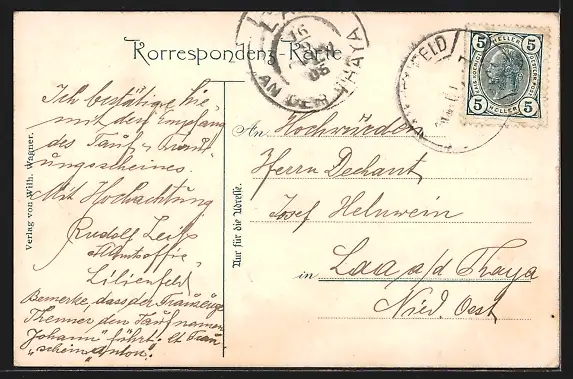 Korrespondenz-Karte
Ich bestätige hie-
mit den Empfang
des Tauf- u. Trau-
ungsscheines.
Mit Hochachtung
Rudolf
Lilienfeld
Bemerke, dass der Trauzeuge
Thenner den Taufnamen
"Johann" führt; lt. Trau-
"schein Anton".
Verlag von Wilh. Wagner.
Nur für die Adresse.
An Hochwürden
Herrn Dechant
Josef Helnwein
in Laa a/d Thaya
Nied. Oest
AN DER THAYA
16
05
FELD
5 HELLER 5
5 HELLER 5